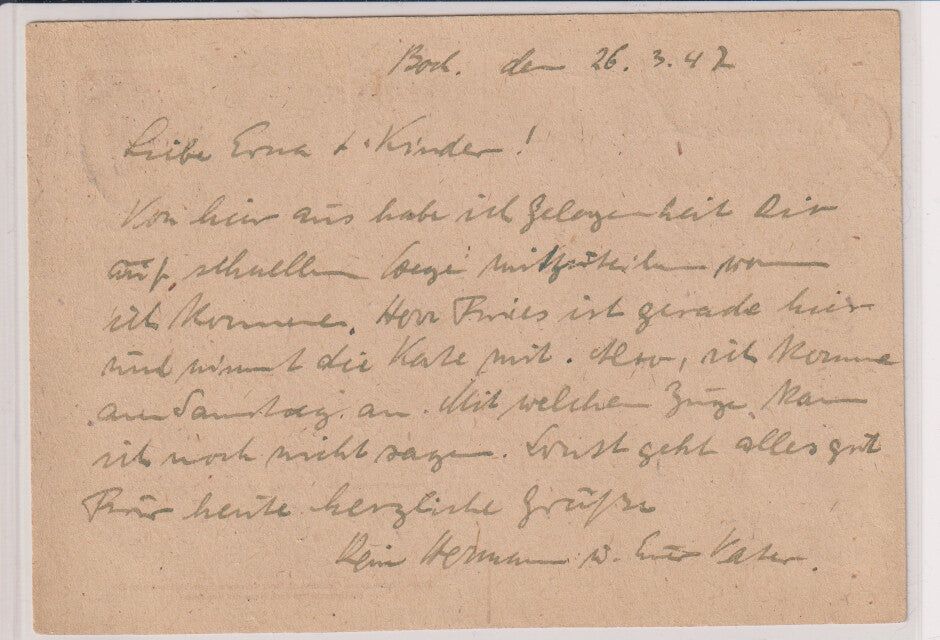 Boch. den 26.3.47
Liebe Erna u. Kinder!
Von hier aus habe ich Gelegenheit Dir
auf schnellen Wege mitzuteilen, wann
ich komme. Herr Fries ist gerade hier
und nimmt die Kate mit. Also, ich komme
am Samstag an. Mit welchem Zuge kann
ich noch nicht sagen. Sonst geht alles gut
Für heute herzliche Grüße
Dein Hermann u. Euer Vater.